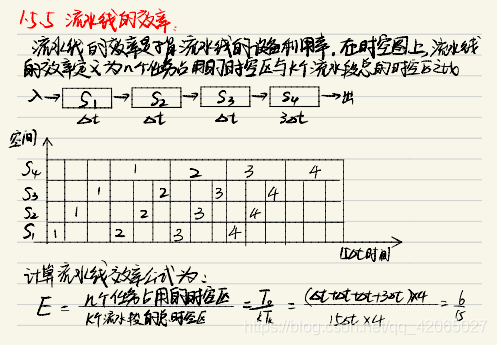 1.5.5 流水线的效率:
流水线的效率是指流水线的设备利用率。在时空图上,流水线
的效率定义为n个任务占用的时空区与k个流水段总的时空区之比
入→ S1 → S2 → S3 → S4 →出
Δt Δt Δt 3Δt
空间
S4 1 2 3 4
S3 1 2 3 4
S2 1 2 3 4
S1 1 2 3 4
15Δt 时间
计算流水线效率公式为:
E = n个任务占用的时空区 / k个流水段的总时空区 = T0 / kTk = (Δt+Δt+Δt+3Δt)×4 / 15Δt×4 = 6 / 15
https://blog.csdn.net/qq_42065027